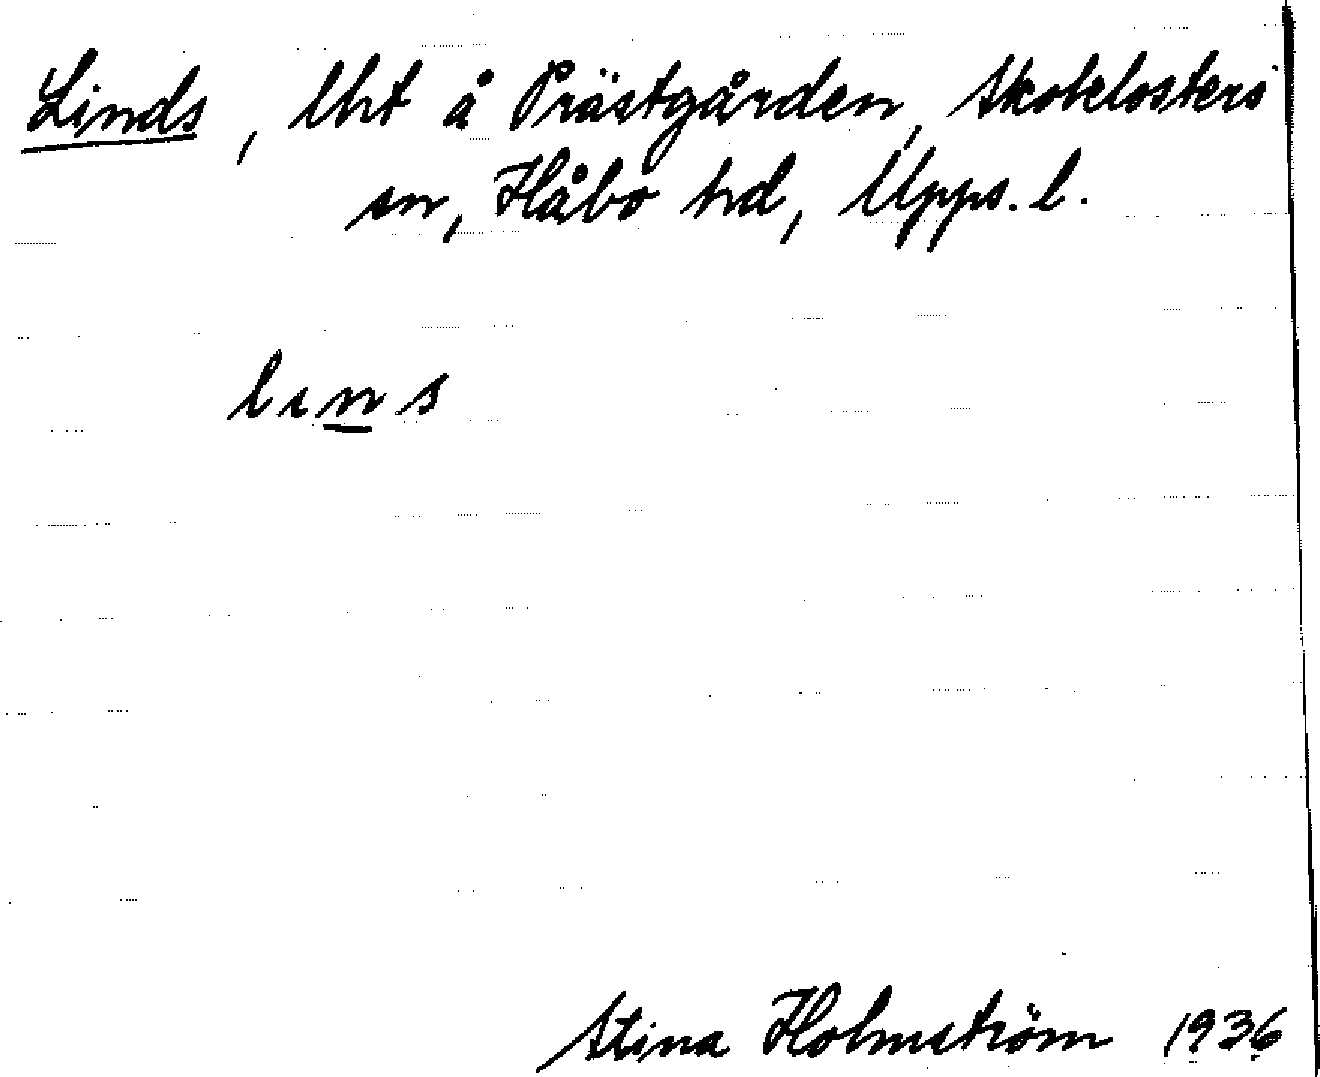 Linds, lht å Prästgården, Skoklosters
sn, Håbo hd, Upps. l.
lıns
Stina Holmström 1936